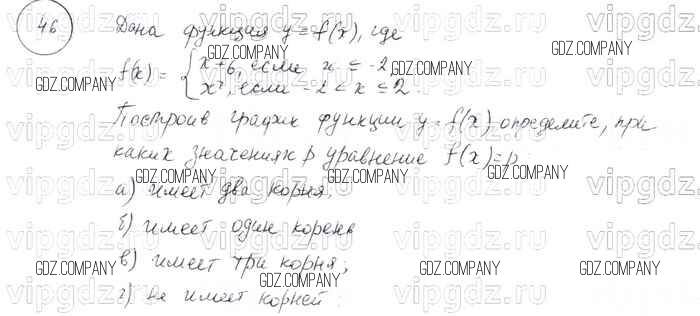 46
Дана функция y = f(x), где
f(x) = { x+6, если x ≤ -2,
x², если -2 < x ≤ 2
Построив график функции y = f(x) определите, при
каких значениях p уравнение f(x) = p
а) имеет два корня;
б) имеет один корень
в) имеет три корня;
г) не имеет корней.
vipgdz.ru
GDZ.COMPANY